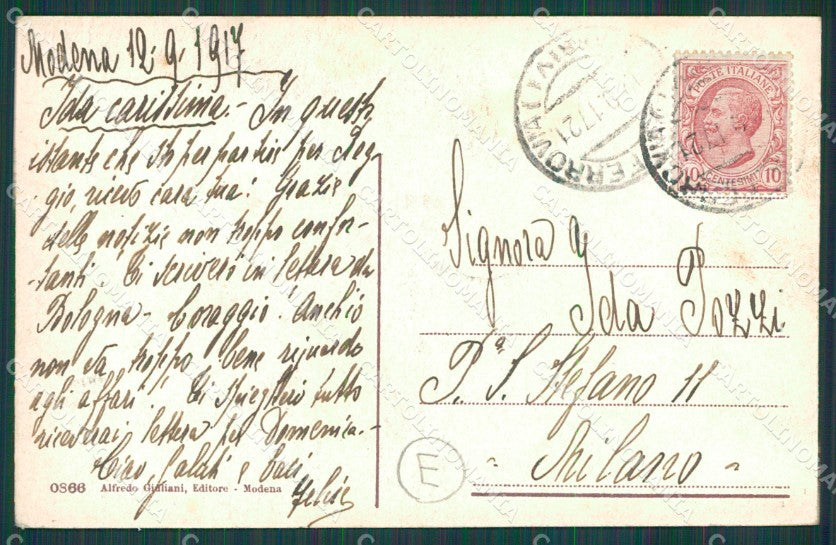 Modena 12.9.1917
Ida carissima.- In questi
istante che sto per partire per Reg-
gio, ricevo cara tua! Grazie
delle notizie non troppo confor-
tanti. Ti scriverò in lettera da
Bologna - Coraggio! Anch'io
non va troppo bene riguardo
agli affari! Ti spiegherò tutto
riceverai lettera per Domenica.-
Ciao, saluti e baci
Felice
0866 Alfredo Giuliani, Editore - Modena
FERROVIA
17 21
POSTE ITALIANE
10 CENTESIMI 10
Signora
Ida Pozzi
P.a S. Stefano 11
- Milano -
E
CARTOLINOMANIA